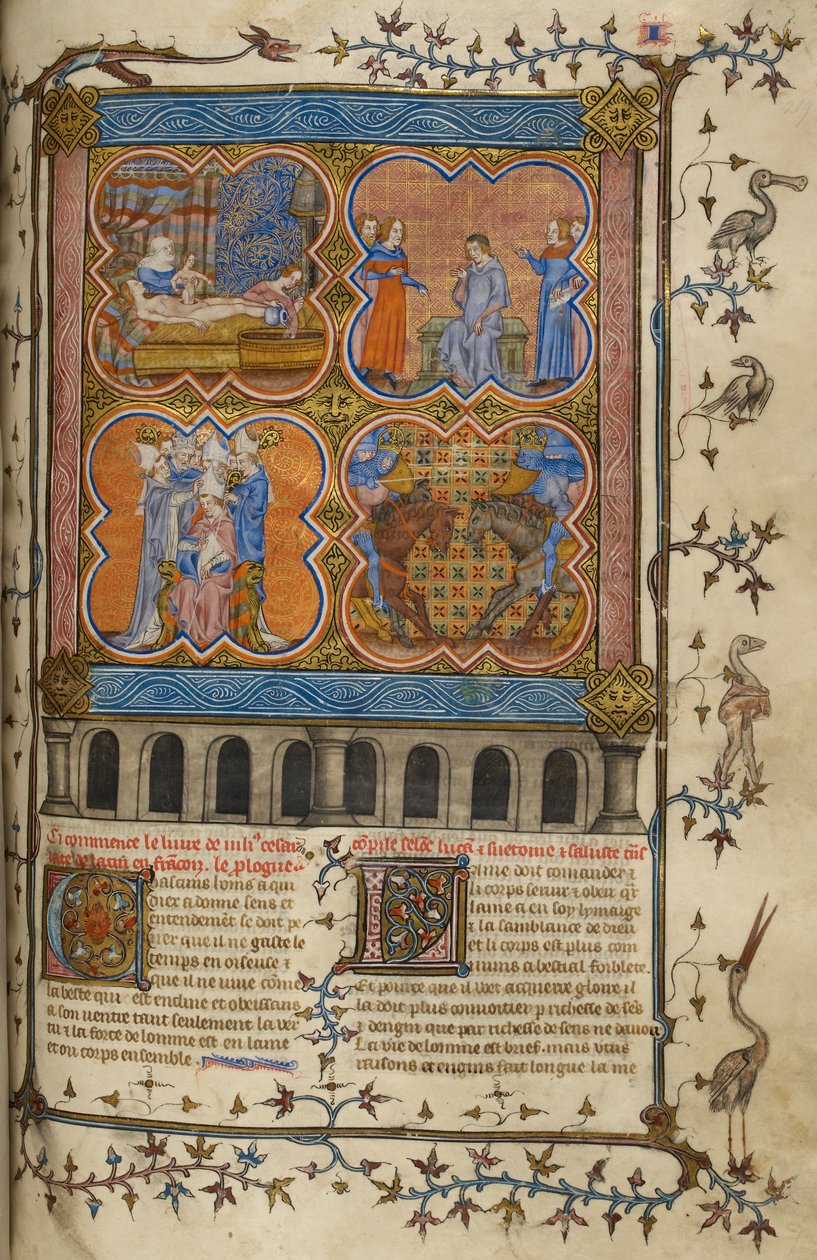 I
Ci commence le liure de iuli⁹ cesar
Chascuns homs a qui
diex a donne sens et
entendemēt se doit pe
ner que il ne gaste le
temps en oiseuse ⁊
que il ne uiue cōme
la beste qui est encline et obeissans
a son uentre tant seulement la ver
tu ⁊ la force de lomme est en lame
et ou corps ensemble
cōpile selōc lucā ⁊ suetoine ⁊ saluste
Lame doit cōmander ⁊
li corps seruir ⁊ obeir qr̄
lame a en soy lymaige
⁊ la samblance de dieu
et li corps est plus com
muns a bestial foiblete.
Et pource que il voet acquerre gloire il
la doit plus conuoitier p richesse de sēs
⁊ dengin que par richesse de
La vie de lomme est brief. mais
raisons ⁊ engins fait longue la me